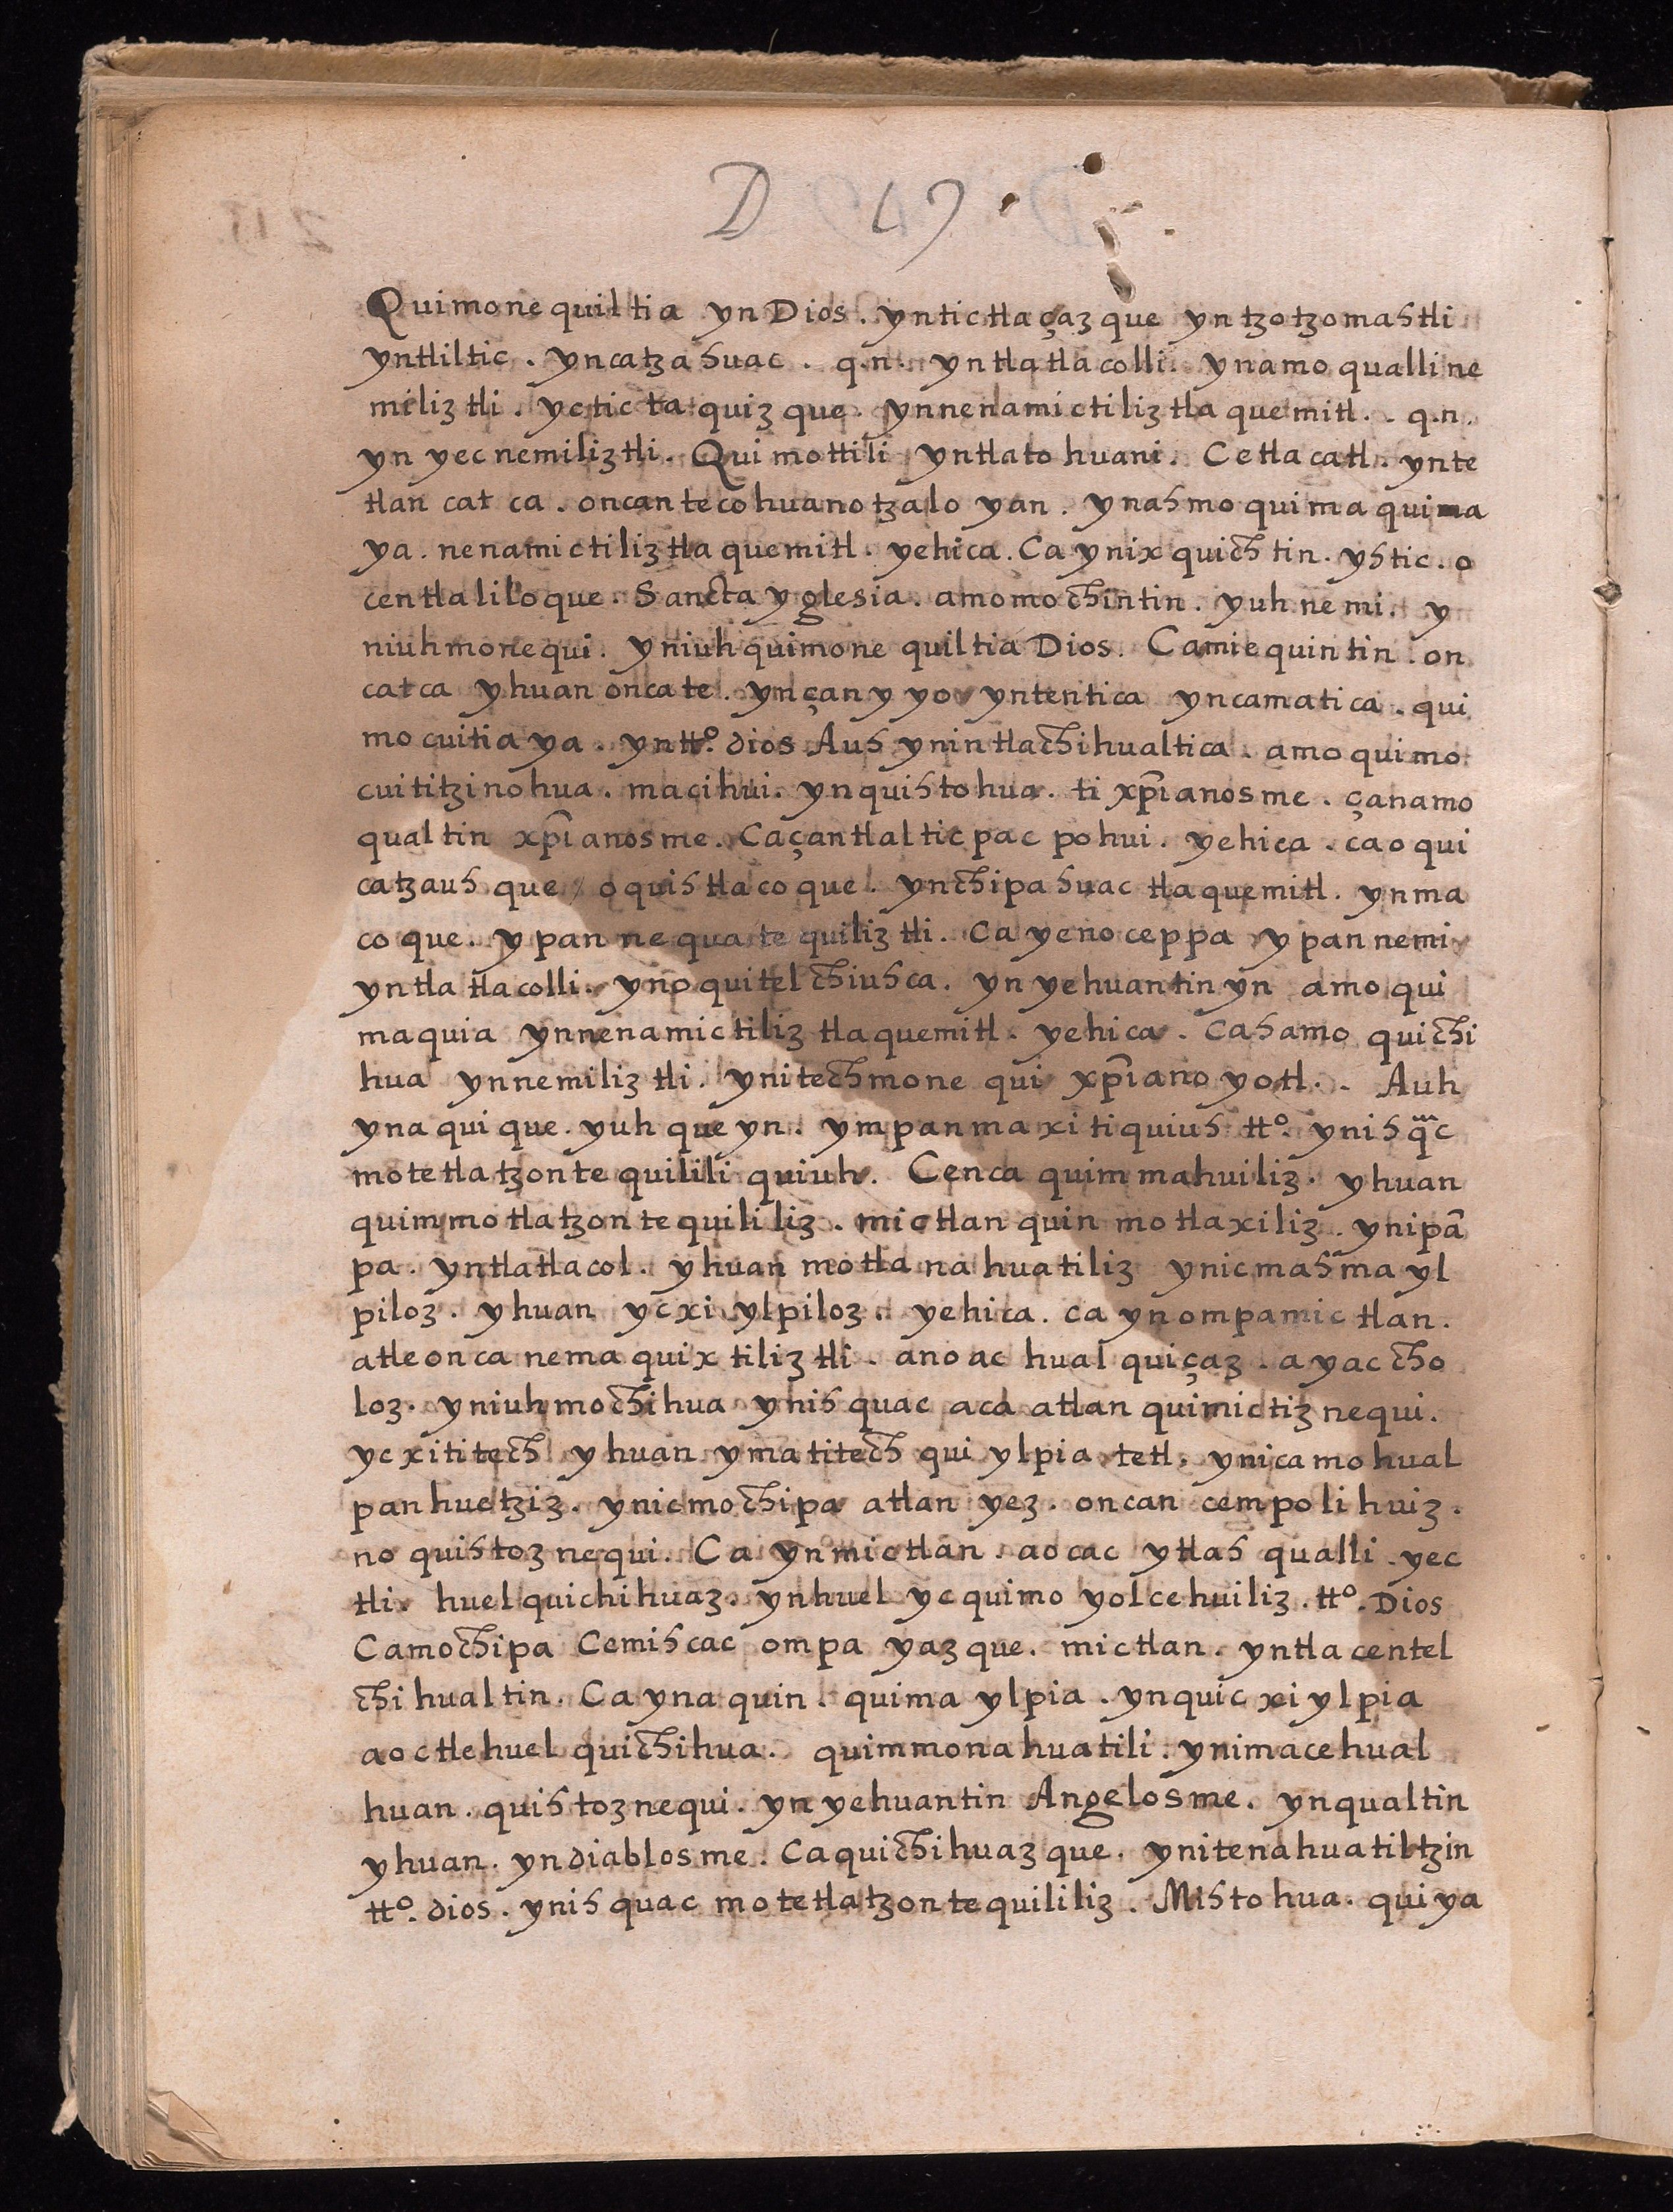 D 19.
Quimonequiltia yn Dios. yntictlaçazque yn tzotzomahtli
yntliltic. yncatzahuac. q.n. yntlatlacolli. ynamo qualline
miliztli. yctictatquizque. ynnenamictiliztlaquemitl. q.n.
yn yecnemiliztli. Quimottili yntlatohuani. Cetlacatl. ynte
tlan catca. oncantecohuanotzaloyan. ynahmo quimaquima
ya. nenamictiliztlaquemitl. yehica. Ca ynixquichtin. yhtic. o
centlaliloque. Sancta yglesia. amomochintin. yuhnemi. y
niuhmonequi. yniuhquimonequiltia Dios. Camiequintin. on
catca yhuan oncate. ynçanyyo yntentica yncamatica. qui
mocuitiaya. yntt.º dios Auh ynintlachihualtica. amo quimo
cuititzinohua. macihui. ynquihtohua. ti xp̄ianosme. çanamo
qualtin xp̄ianosme. Caçantlalticpac pohui. yehica. caoqui
catzauhque, oquihtlacoque. ynchipahuac tlaquemitl. ynma
coque. ypan nequatequiliztli. Ca yenoceppa ypan nemi
yntlatlacolli. ynoquitelchiuhca. yn yehuantinyn amo qui
maquia ynnenamictiliztlaquemitl. yehica. Cahamo quichi
hua ynnemiliztli. ynitechmonequi xp̄ianoyotl. Auh
ynaquique. yuhqueyn. ympanmaxitiquiuh tt.º ynihq̃c
motetlatzontequilili quiuh. Cenca quimmahuiliz. yhuan
quimmotlatzontequililiz. mictlan quinmotlaxiliz. ynipā
pa. yntlatlacol. yhuan motlanahuatiliz ynicmahmayl
piloz. yhuan ycxi ylpiloz. yehica. ca ynompamictlan.
atleonca nemaquixtiliztli. anoac hualquiçaz. ayac cho
loz. yniuhmochihua ynihquac aca atlan quimictiznequi.
ycxititech yhuan ymatitech quiylpia tetl. ynicamo hual
panhuetziz. ynicmochipa atlan yez. oncan cempolihuiz.
noquihtoznequi. Ca ynmictlan. aocac ytlah qualli yec
tli. huelquichihuaz. ynhuel ycquimoyolcehuiliz. tt.º Dios
Camochipa Cemihcac ompa yazque. mictlan. yntlacentel
chihualtin. Ca ynaquin. quimaylpia. ynquicxiylpia
aoctlehuel quichihua. quimmonahuatili. ynimacehual
huan. quihtoznequi. yn yehuantin Angelosme. ynqualtin
yhuan. yndiablosme. Caquichihuazque. ynitenahuatiltzin
tt.º dios. ynihquac motetlatzontequililiz. Mihtohua. quiya